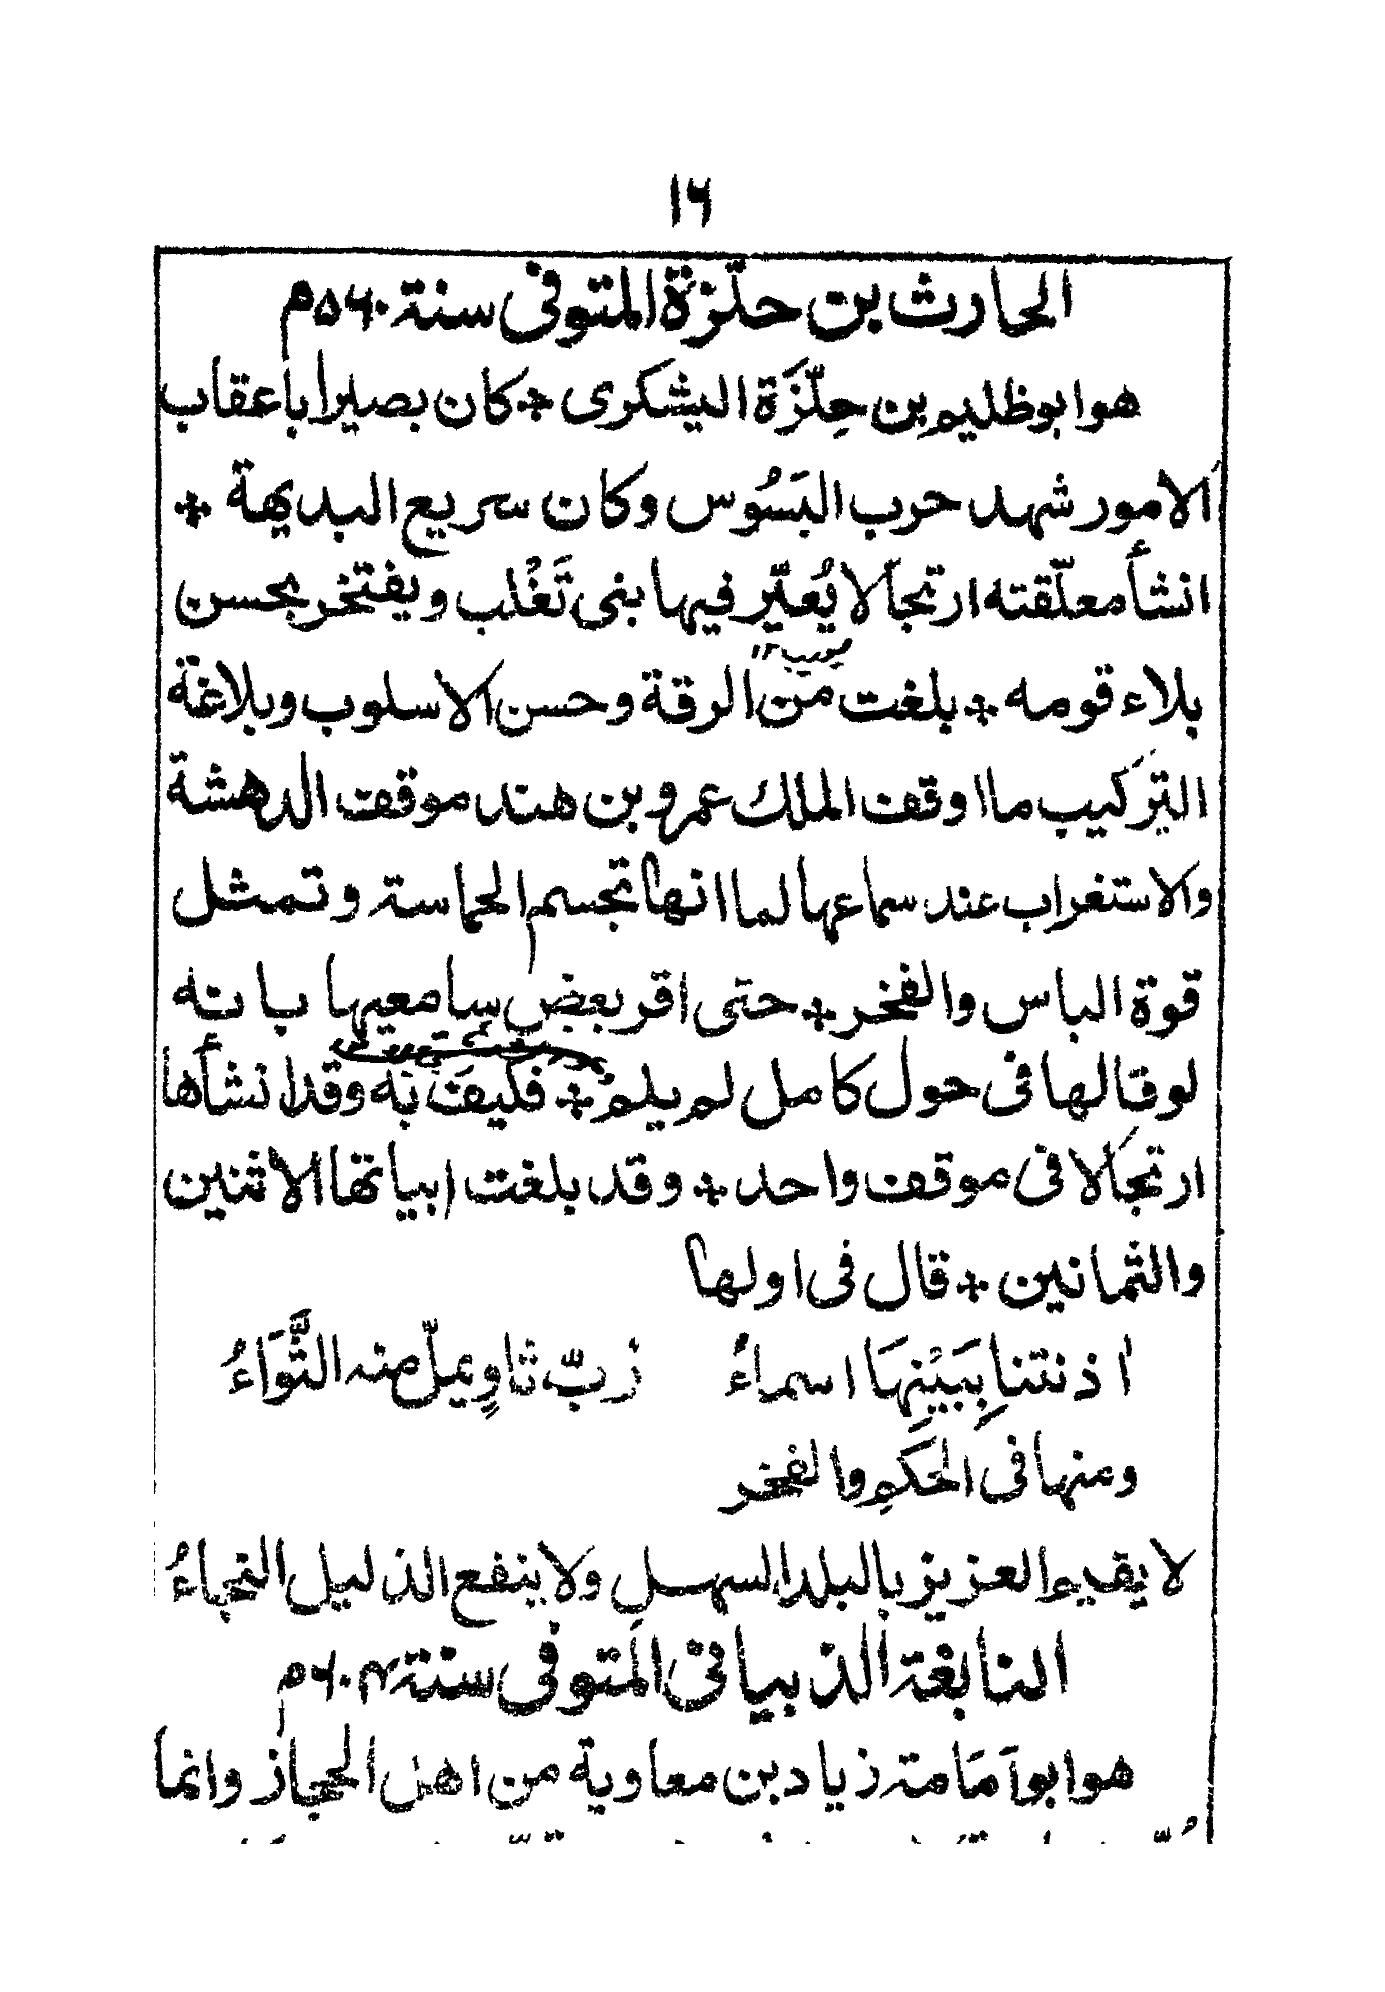 ١٦
الحارث بن حلّزة المتوفى سنة ٥٦٠م
هو ابو ظليم بن حِلّزَة اليشكرى * كان بصيرا باعقاب
الامور شهد حرب البَسُوس وكان سريع البديهة *
انشأ معلّقته ارتجالا يُعيّر فيها بنى تَغْلب ويفتخر بحسن
بلاء قومه * بلغت من الرقة وحسن الاسلوب وبلاغة
التركيب ما اوقف الملك عمرو بن هند موقف الدهشة
والاستغراب عند سماعها لما انها تجسم الحماسة وتمثل
قوة الباس والفخر * حتى اقر بعض سامعيها بانه
لو قالها فى حول كامل لم يلم * فكيف به وقد انشأها
ارتجالا فى موقف واحد * وقد بلغت ابياتها الاثنين
والثمانين * قال فى اولها
اٰذنتنا بِبَيْنِهَا اسماءُ رُبّ ثاوٍ يملّ منه الثَّوَاءُ
ومنها فى الحِكَمِ والفخر
لا يقيم العزيز بالبلد السهل ولا ينفع الذليل النجاءُ
النابغة الذبيانى المتوفى سنة ٦٠٤م
هو ابو اَمَامة زياد بن معاوية من اهل الحجاز وانما